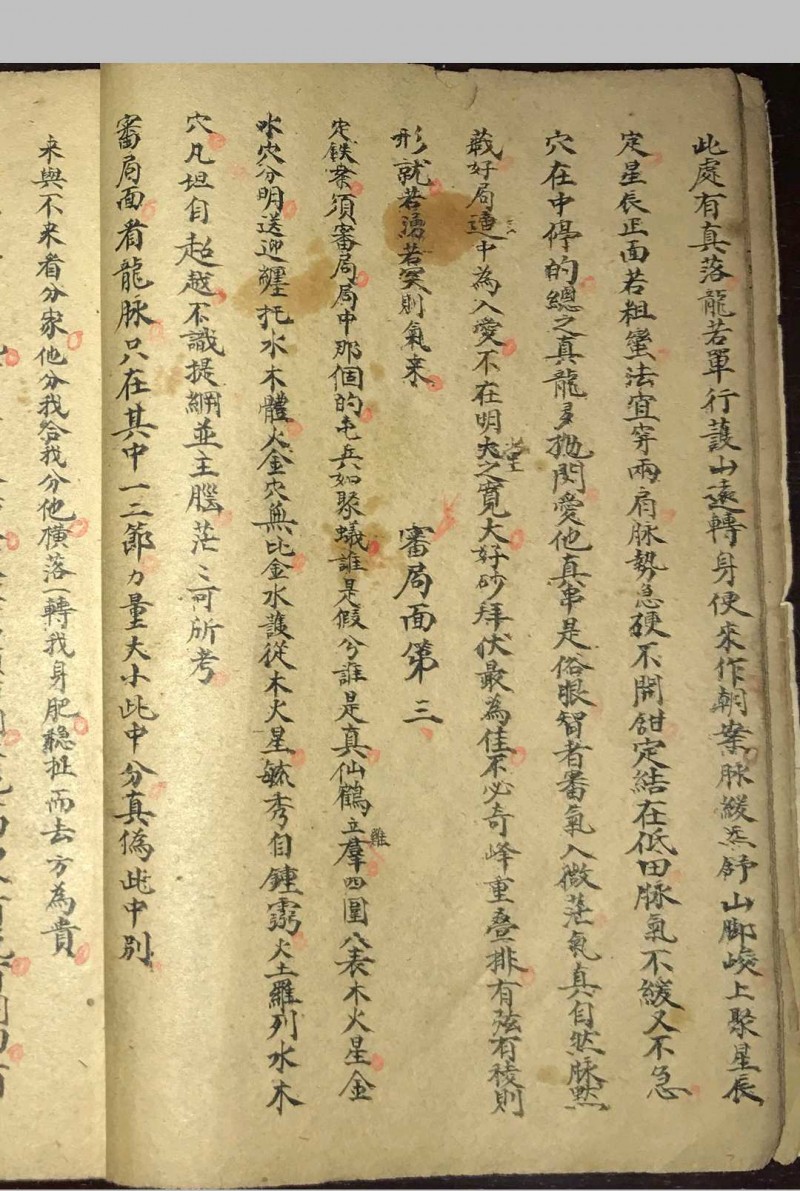 此處有真落龍若單行護山遠轉身便來作朝案脉緩岙舒山腳峻上聚星辰
定星辰正面若粗蠻法宜穿兩肩脉勢急硬不開鉗定結在低田脉氣不緩又不急
穴在中停的總之真龍多拋閃愛他真串是俗眼智者審氣入微茫氣真自然脉黙
藏好局遶中為入愛不在明堂之寬大好砂拜伏最為佳不必奇峰重疊排有弦有稜則
形就若湧若突則氣来
審局面第三
定鉄案須審局局中那個的屯兵如聚蟻誰是假兮誰是真仙鶴立雞羣四圍八表木火星金
水穴分明送迎纏托水木體火金穴無比金水護從木火星毓秀自鍾靈火土羅列水木
穴凡坦自超越不識提綱並主腦茫〻何所考
審局面看龍脉只在其中一二節力量大小此中分真偽此中別
来與不来看分家他分我給我分他横落一轉我身肥穏拖而去方為貴